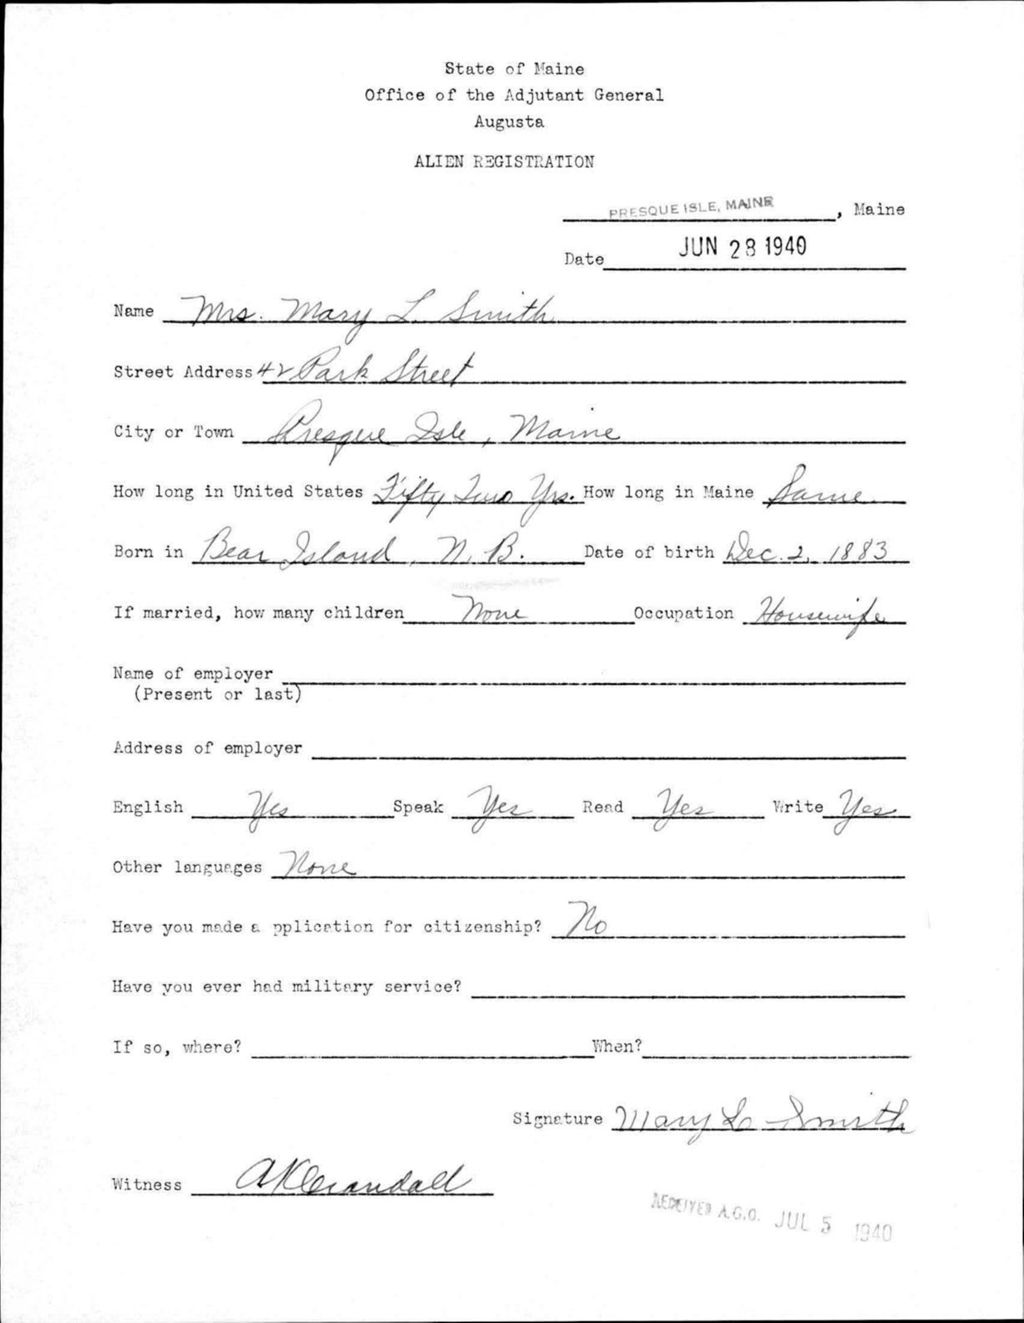 State of Maine
Office of the Adjutant General
Augusta
ALIEN REGISTRATION
PRESQUE ISLE, MAINE, Maine
Date JUN 28 1940
Name Mrs. Mary L Smith
Street Address 42 Park Street
City or Town Presque Isle, Maine
How long in United States Fifty Two Yrs. How long in Maine Same
Born in Bear Island, N.B. Date of birth Dec. 2, 1883
If married, how many children None Occupation Housewife
Name of employer
(Present or last)
Address of employer
English Yes Speak Yes Read Yes Write Yes
Other languages None
Have you made a pplication for citizenship? No
Have you ever had military service?
If so, where? When?
Signature Mary L Smith
Witness AKCrandall
RECEIVED A.G.O. JUL 5 1940